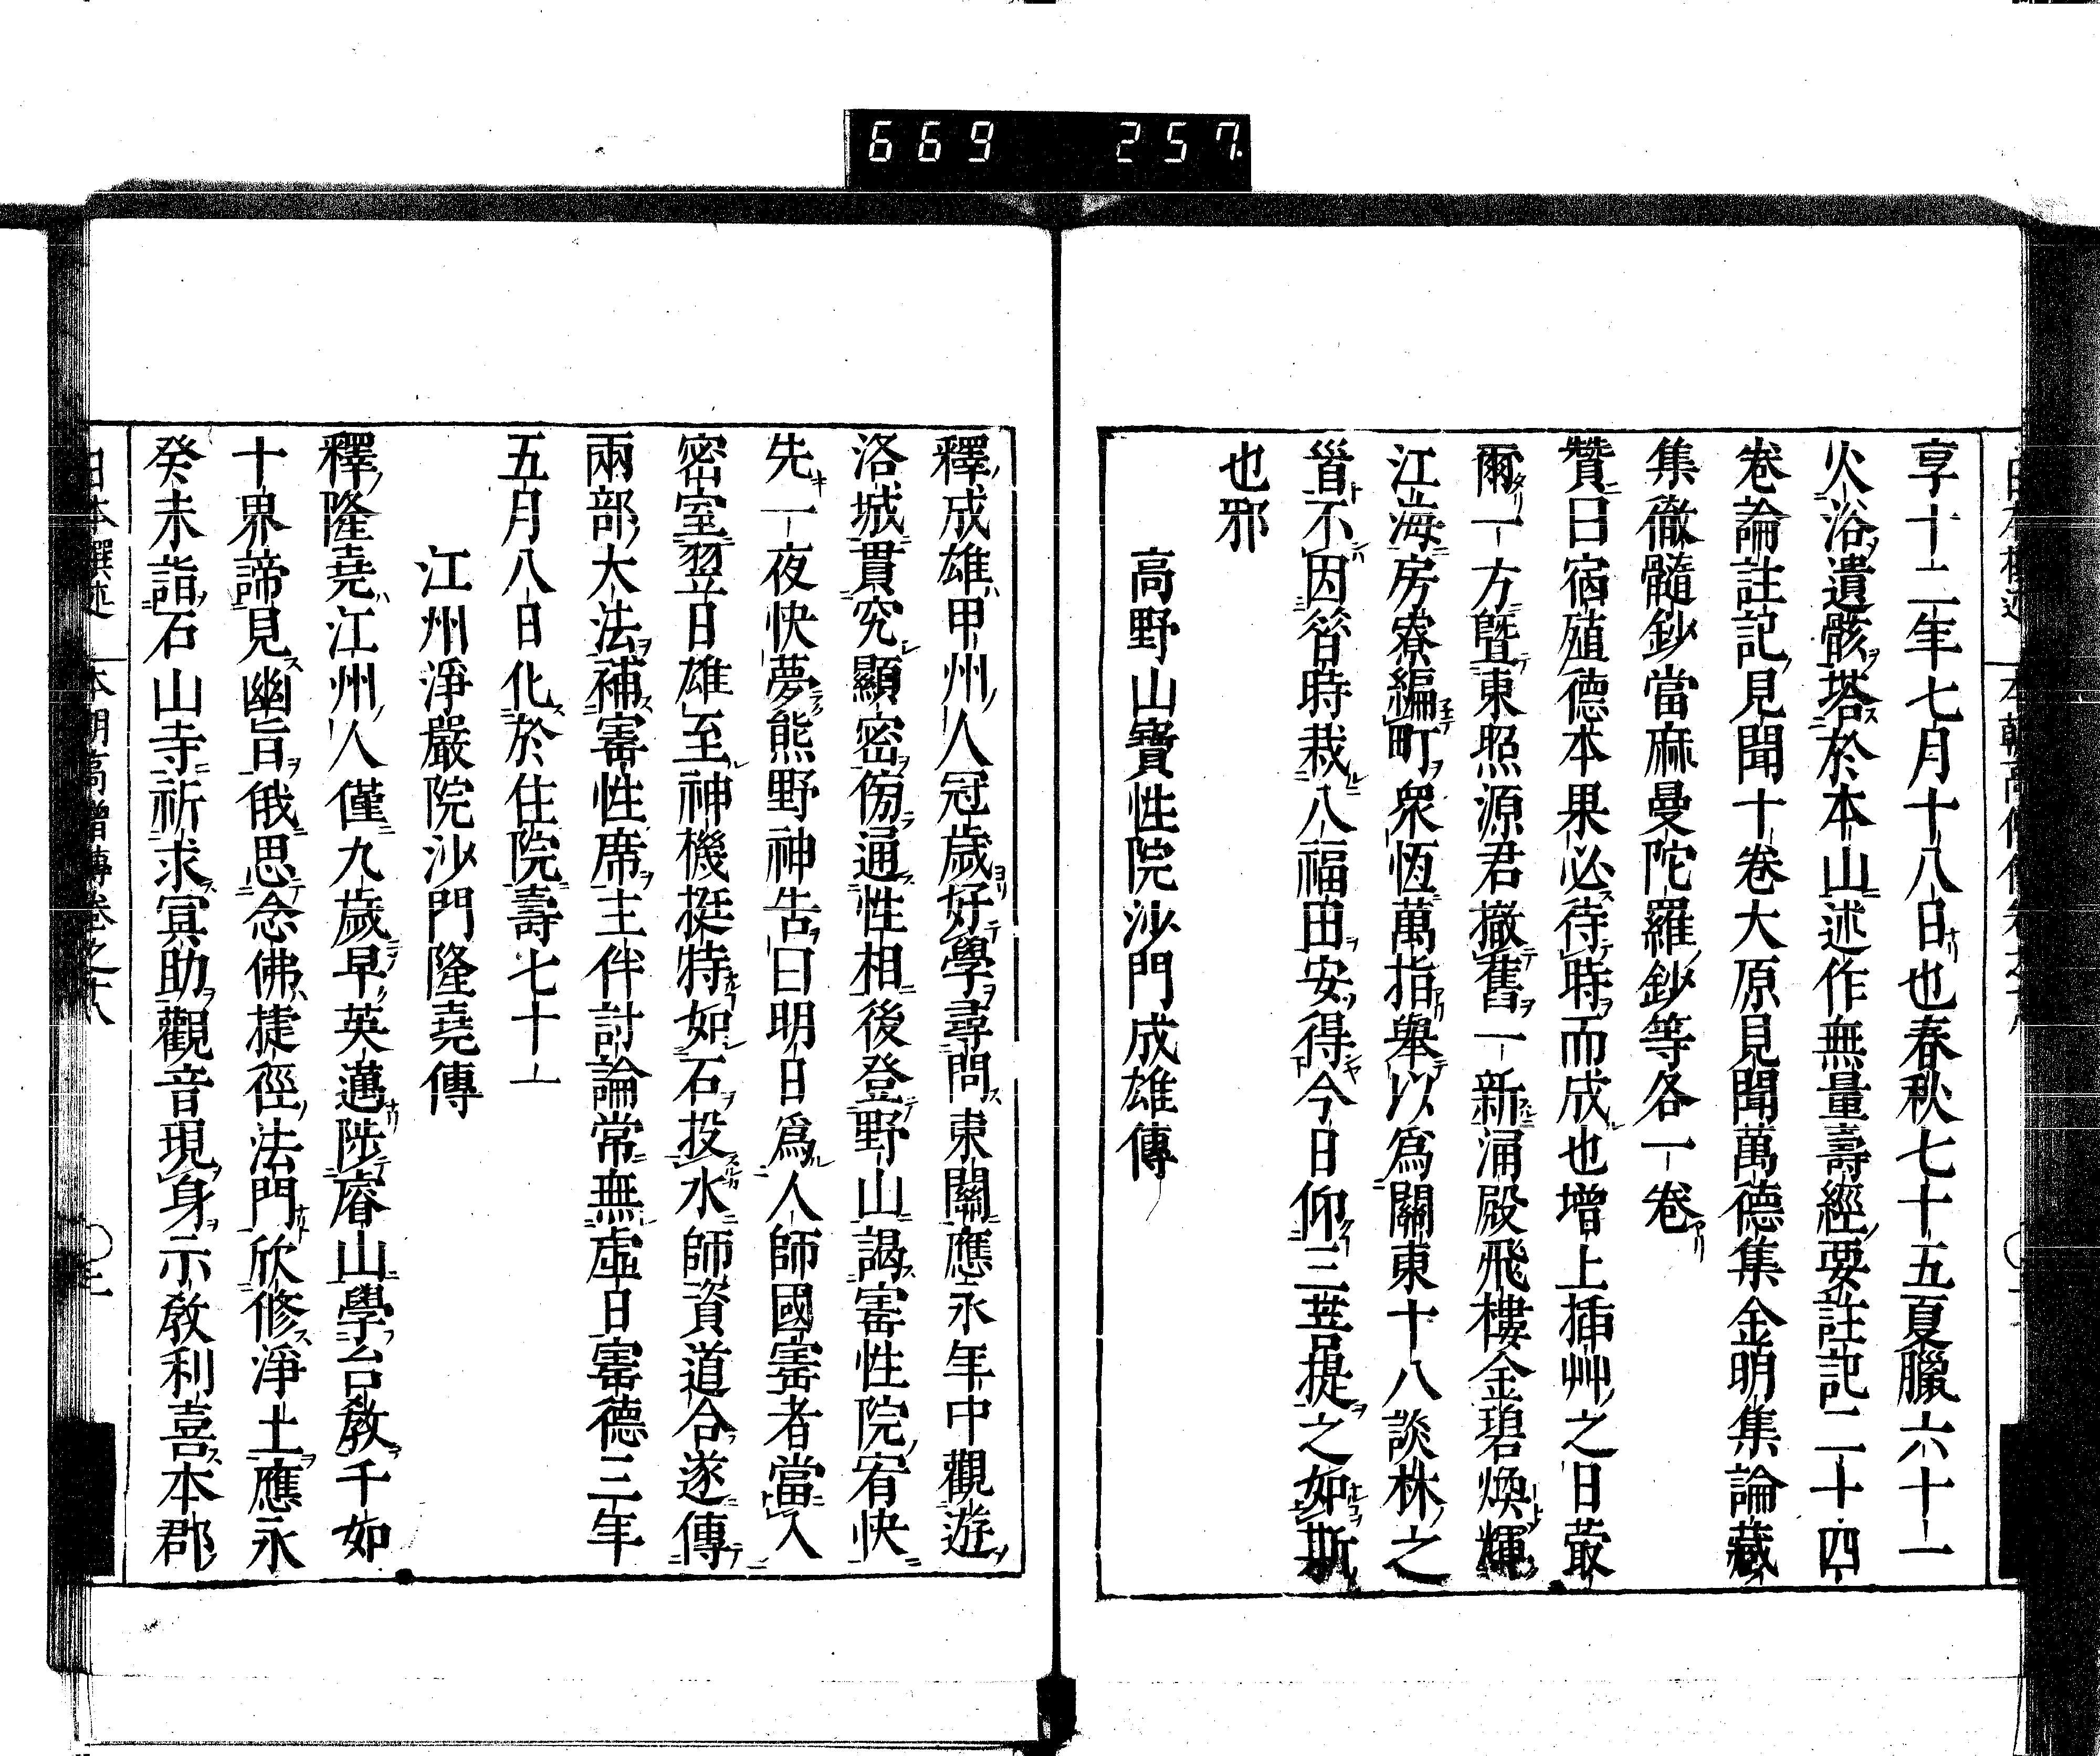 669 257
享十二年七月十八日也春秋七十五夏臘六十一
火浴遺骸塔於本山述作無量壽經要註記二十四
卷論註記見聞十卷大原見聞萬德集金明集論藏
集徹髓鈔當麻曼陀羅鈔等各一卷
贊曰宿殖德本果必待時而成也增上插艸之日蕞
爾一方曁東照源君撤舊一新涌殿飛樓金碧煥輝
江海房寮編町衆恆萬指舉以爲關東十八談株之
首不因昔時栽八福田安得今日仰三菩提之如斯
也邪
高野山寶性院沙門成雄傳
釋成雄甲州人冠歲好學尋問東關應永年中觀遊
洛城貫究顯密傍通性相後登野山謁寚性院宥快
先一夜快夢熊野神告曰明日爲人師國寚者當入
密室翌日雄至神機挺特如石投水師資道合遂傳
兩部大法補寚性席主伴討論常無虛日寚德三年
五月八日化於住院壽七十一
江州淨嚴院沙門隆堯傳
釋隆堯江州人僅九歲早英邁陟睿山學台教千如
十界諦見幽旨俄思念佛捷徑法門欣修淨土應永
癸未詣石山寺祈求冥助觀音現身示教利喜本郡
日本撰述 本朝高僧傳卷之十八